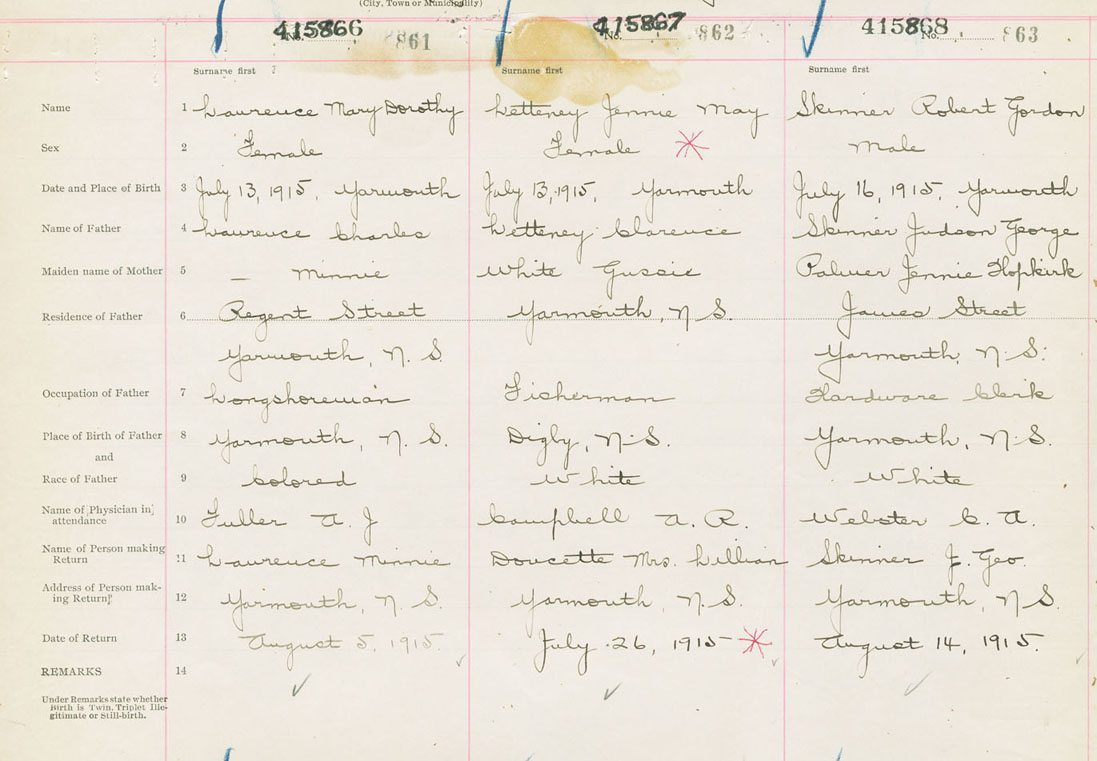 (City, Town or Municipality)
415866 No. 861 415867 No. 862 415868 No. 863
Surname first Surname first Surname first
Name 1 Laurence Mary Dorothy Letteney Jennie May Skinner Robert Gordon
Sex 2 Female Female Male
Date and Place of Birth 3 July 13, 1915, Yarmouth July 13, 1915, Yarmouth July 16, 1915, Yarmouth
Name of Father 4 Laurence Charles Letteney Clarence Skinner Judson George
Maiden name of Mother 5 — Minnie White Gussie Palmer Jennie Hopkirk
Residence of Father 6 Regent Street Yarmouth, N S. James Street
Yarmouth, N. S. Yarmouth, N. S.
Occupation of Father 7 Longshoreman Fisherman Hardware Clerk
Place of Birth of Father 8 Yarmouth, N. S. Digby, N. S. Yarmouth, N. S.
and
Race of Father 9 Colored White White
Name of Physician in attendance 10 Fuller A. J Campbell A. R. Webster C. A.
Name of Person making Return 11 Laurence Minnie Doucette Mrs. Lillian Skinner J. Geo.
Address of Person making Return 12 Yarmouth, N. S. Yarmouth, N. S. Yarmouth, N S.
Date of Return 13 August 5, 1915. July 26, 1915 August 14, 1915.
REMARKS 14
Under Remarks state whether
Birth is Twin, Triplet Ille-
gitimate or Still-birth.